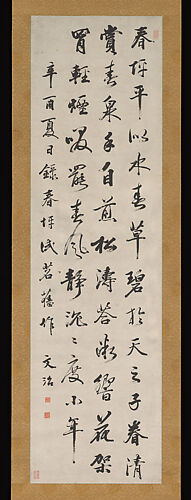 春坪平似水春草碧於天之子眷清
賞春泉手自煎松濤荅漸響花架
罥輕煙啜罷春風靜沉〻度小年
辛酉夏日錄春坪試茗舊作 文治